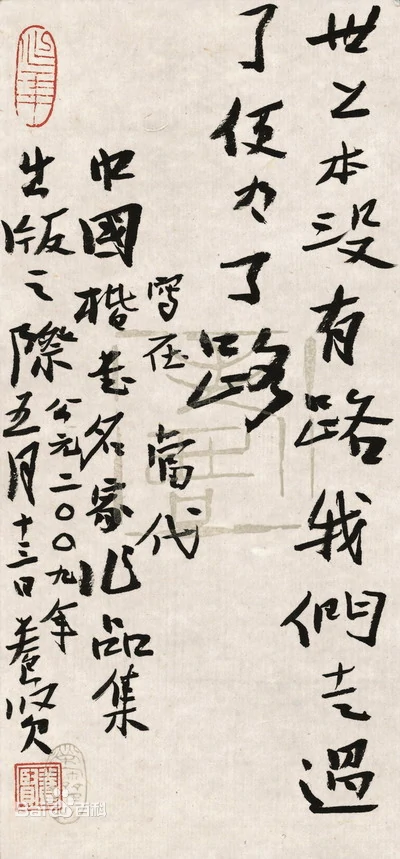 世上本没有路我們走過
了便有了路
寫在當代
中國楷書名家作品集
出版之際
公元二〇〇九年
五月十三日養賢
百科